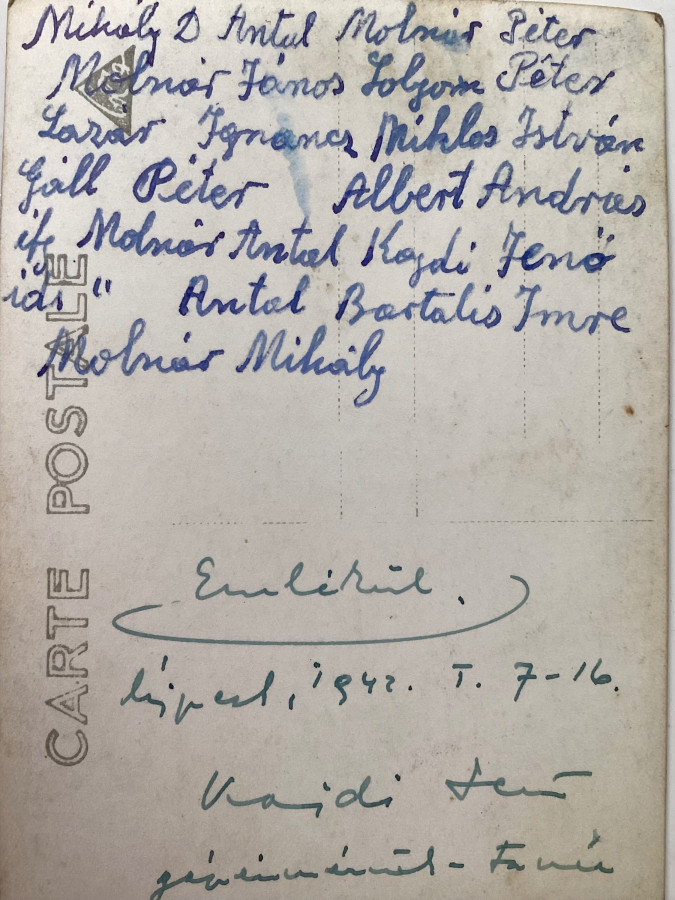 Mihály D Antal Molnár Péter
Molnár János Solyom Péter
Lazár Ignáncz Miklos István
Gáll Péter Albert András
ifj Molnár Antal Kajdi Jenő
idi " Antal Bartalis Imre
Molnár Mihály
CARTE POSTALE
Emlékül.
1942. I. 7-16.
Kajdi Jenő